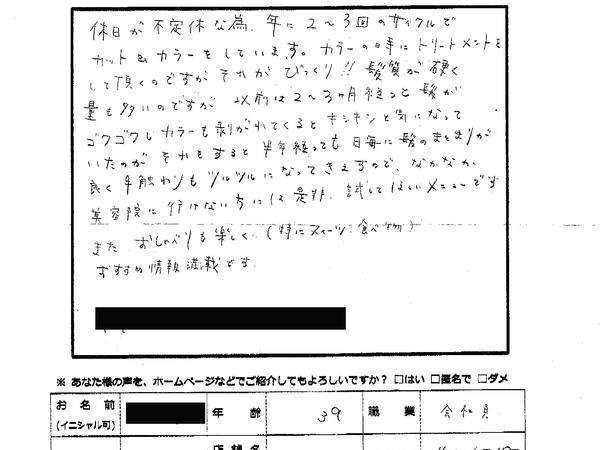 休日が不定休な為、年に2〜3回のサイクルで
カット&カラーをしています。カラーの時にトリートメントを
して頂くのですが それが びっくり!! 髪質が硬く
量も多いのですが 以前は2〜3ヶ月経つと髪が
ゴワゴワしカラーも剥がれてくるとキシキシと気になって
いたのが それをすると 半年経っても 日毎に髪のまとまりが
良く手触りもツルツルになってきますので、なかなか
美容院に行けない方には是非、試してほしいメニューです
また おしゃべりも楽しく(特にスイーツ:食べ物)
おすすめ情報満載です。
※ あなた様の声を、ホームページなどでご紹介してもよろしいですか? □はい □匿名で □ダメ
お名前 年齢 39 職業 会社員
(イニシャル可)
店舗名